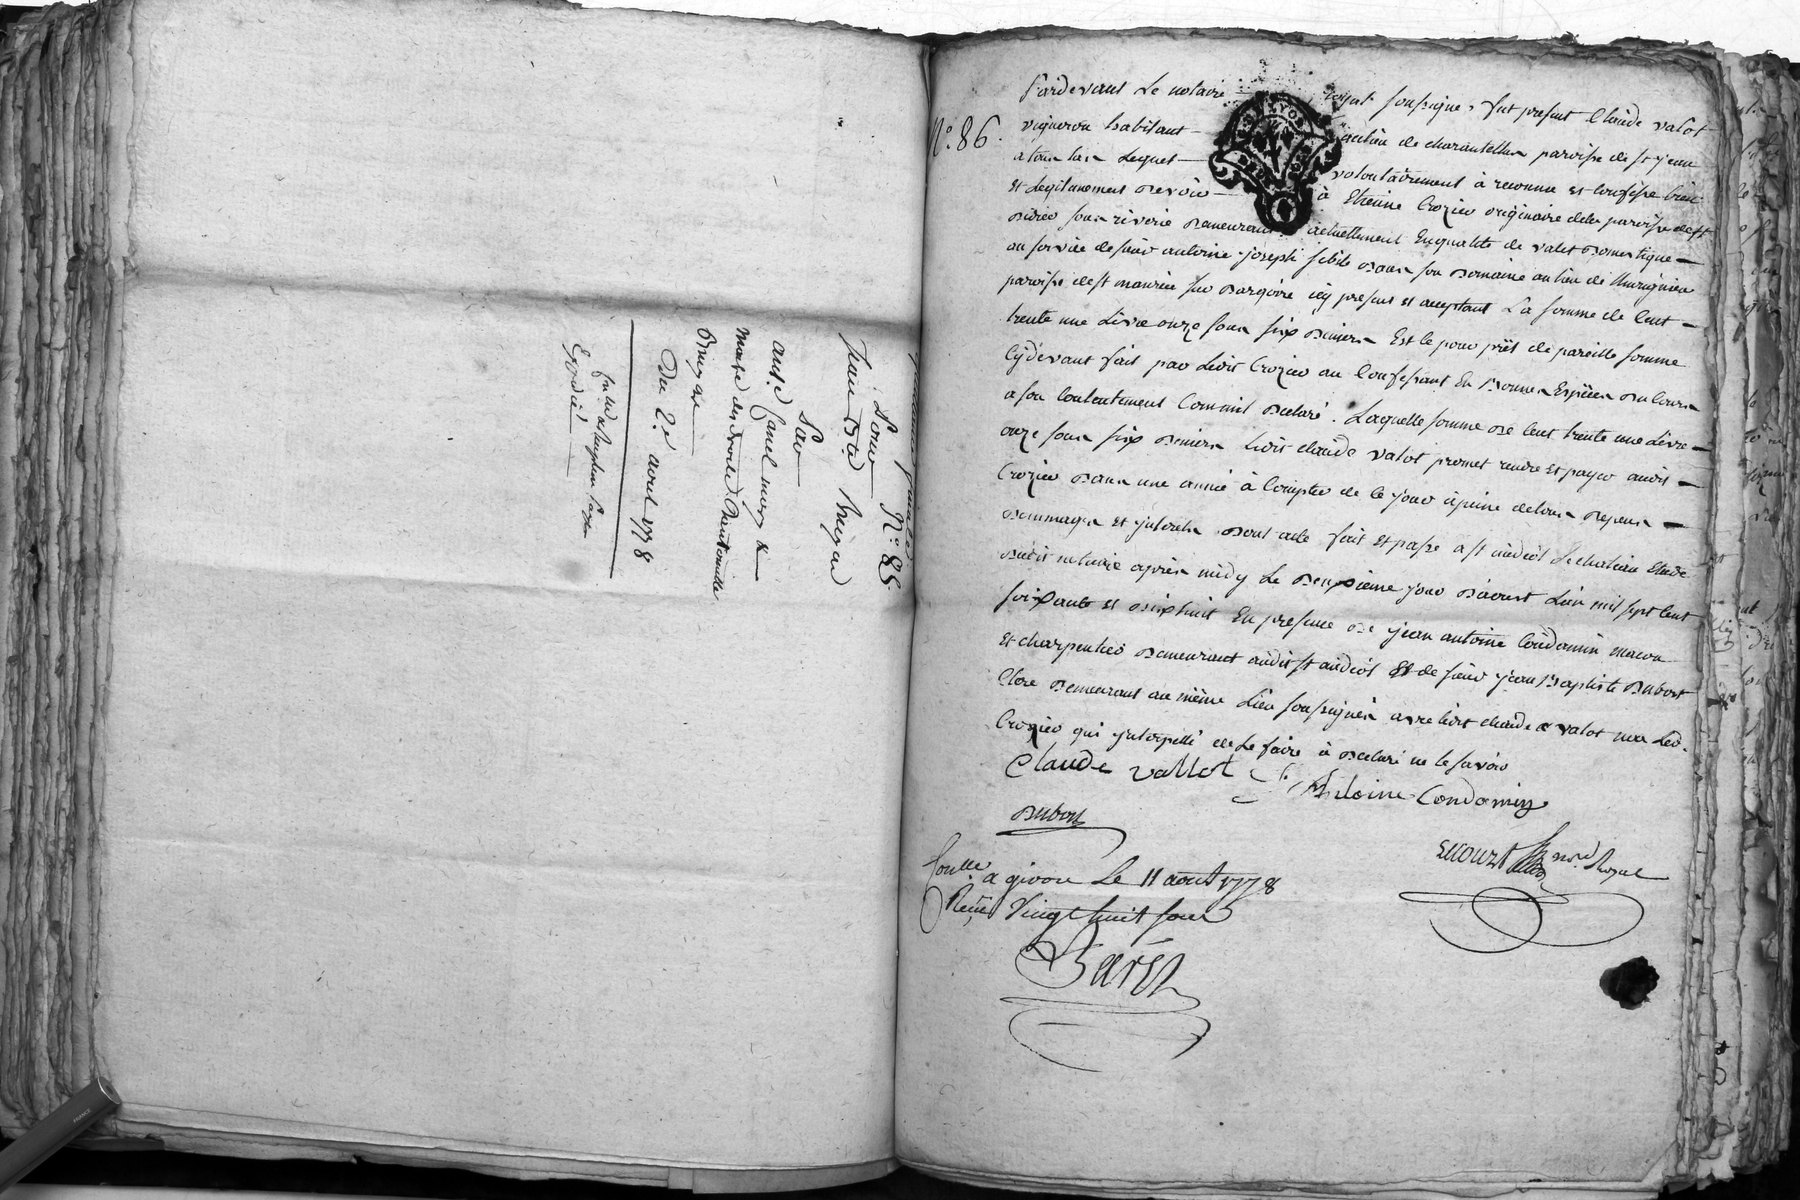 N.° 85.
pour
jean B.te
Par
ant.e
du 2.e aout 1778
Expedié
N.° 86.
Pardevant Le notaire royal soussigné, fut present Claude valot
vigneron habitant au lieu de charantellen paroisse de st jean
a tousLas Lequel volontairement à reconnu et confessé bien
et Legitimement devoir à Etienne Crozier originaire de la paroisse de st
didier sous riverie Demeurant actuellement En qualité de valet Domestique
au service de sieur antoine joseph Dans son Domaine au lieu de
paroisse de st maurice sur Dargoire icy present et acceptant La somme de Cent
trente une Livre onze sous six Deniers Est le pour prêt de pareille somme
Cydevant fait par Ledit Crozier au Confessant En Bonnes Espèces Du Cours
a son Contentement Comm'il à declaré. Laquelle somme de Cent trente une Livre
onze sous six Deniers Ledit claude valot promet rendre et payer audit
Crozier Dans une année à Compter de ce jour à peine de tous Depens
Dommages et jnterets Dont acte fait et passé a st andéol Le chateau Etude
Dudit notaire après midy Le Deuxième jour D'aoust L'an mil sept cent
soixante et dixhuit En presence De jean antoine Condamin macon
et charpentier Demeurant audit st andéol Et de sieur jean Baptiste Dubost
Clerc Demeurant au même Lieu soussignés avec Ledit claude valot non Led.
Crozier qui jnterpellé de Le faire à Declaré ne le savoir
Claude vallot J. Antoine Condamin
Dubost
not. Royal
Con.lle a givors Le 11 aout 1778
Reçu Vingt huit sous